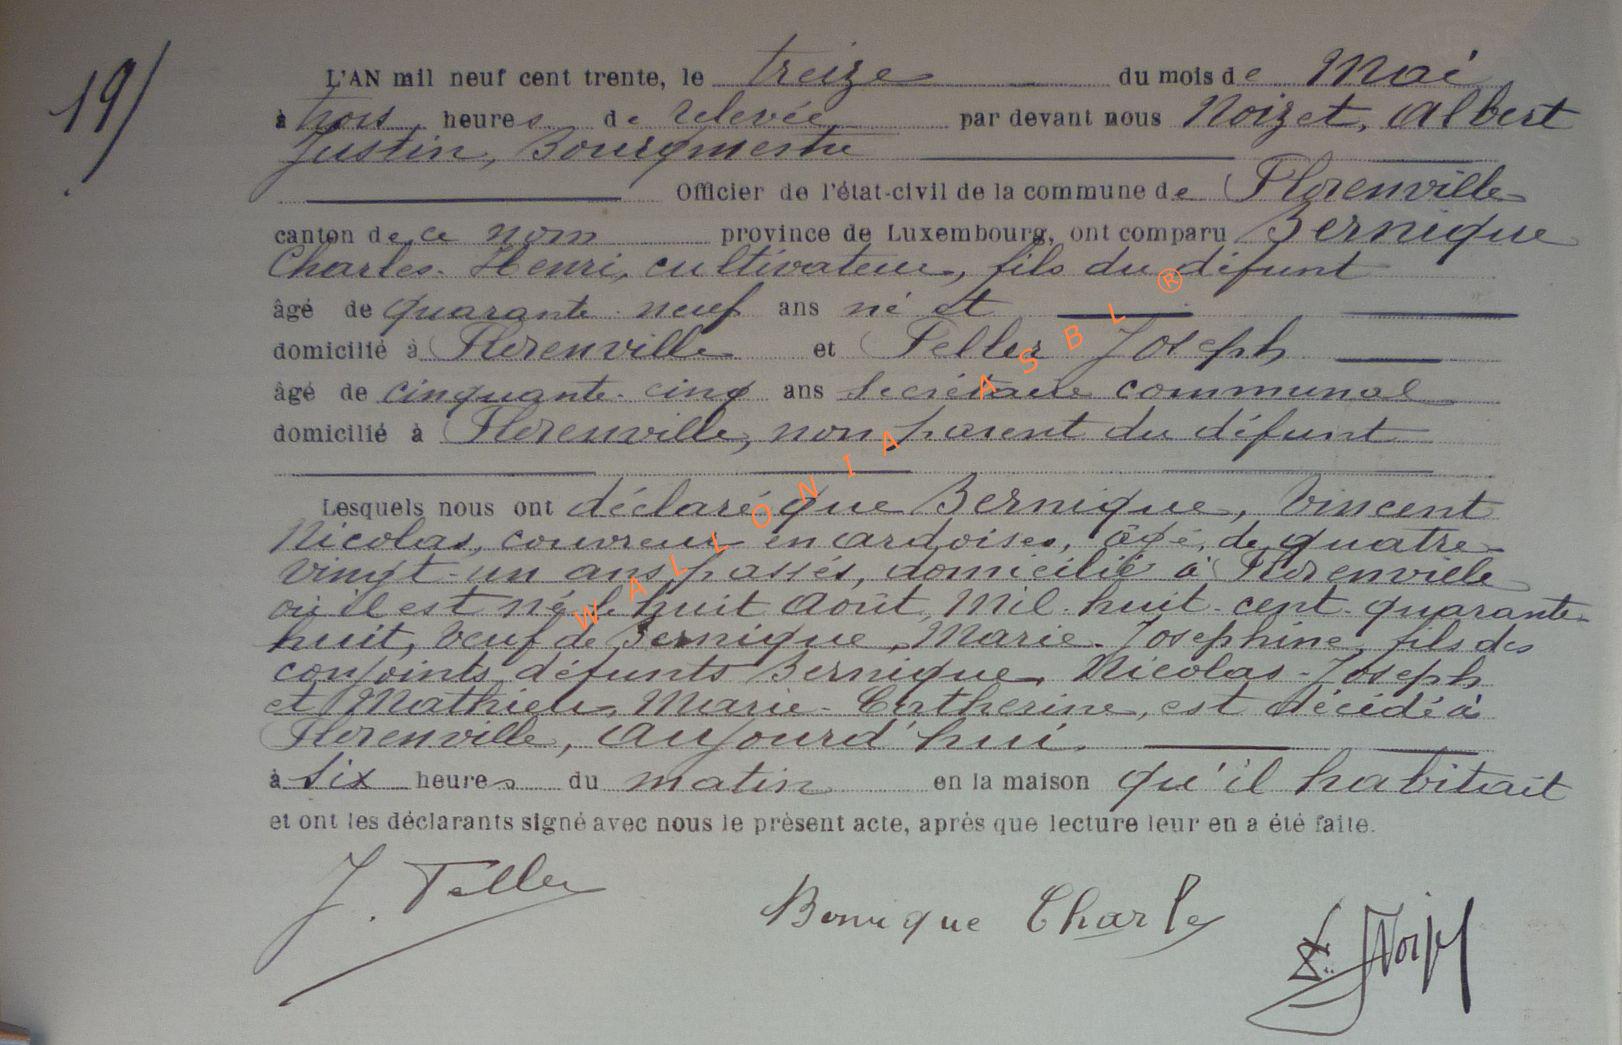 19/
L'AN mil neuf cent trente, le treize du mois de Mai
à trois heures de relevée par devant nous Noizet, Albert
Justin, Bourgmestre
Officier de l'état-civil de la commune de Florenville
canton de ce nom province de Luxembourg, ont comparu Bernique
Charles-Henri, cultivateur, fils du défunt
âgé de quarante-neuf ans né et
domicilié à Florenville et Feller Joseph
âgé de cinquante-cinq ans secrétaire communal
domicilié à Florenville, non parent du défunt
Lesquels nous ont déclaré que Bernique, Vincent
Nicolas, couvreur en ardoises, âgé, de quatre-
vingt-un ans passés, domicilié à Florenville
où il est né le huit Août, Mil-huit-cent-quarante-
huit, veuf de Bernique, Marie-Josephine, fils des
conjoints défunts Bernique, Nicolas-Joseph
et Mathieu, Marie-Catherine, est décédé à
Florenville, aujourd'hui,
à six heures du matin en la maison qu'il habitait
et ont les déclarants signé avec nous le présent acte, après que lecture leur en a été faite.
J. Feller
Bernique Charles
Noizet
WALLONIA ASBL ®